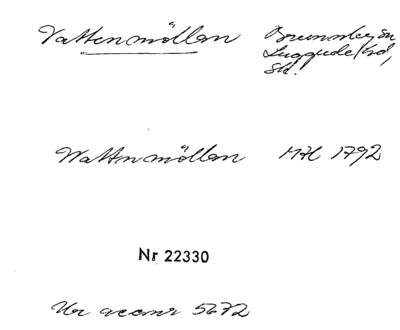 Vattenmöllan Brunnby sn
Luggude hd,
Sk.
Wattnmöllan MH 1792
Nr 22330
Ur accnr 5672